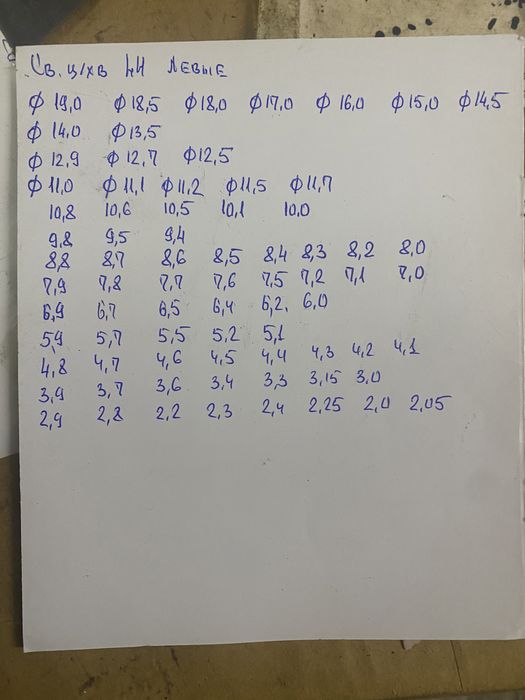 Св. ц/хв LH ЛЕВЫЕ
ф 19,0 ф 18,5 ф 18,0 ф 17,0 ф 16,0 ф 15,0 ф 14,5
ф 14,0 ф 13,5
ф 12,9 ф 12,7 ф 12,5
ф 11,0 ф 11,1 ф 11,2 ф 11,5 ф 11,7
10,8 10,6 10,5 10,1 10,0
9,8 9,5 9,4
8,8 8,7 8,6 8,5 8,4 8,3 8,2 8,0
7,9 7,8 7,7 7,6 7,5 7,2 7,1 7,0
6,9 6,7 6,5 6,4 6,2. 6,0
5,9 5,7 5,5 5,2 5,1
4,8 4,7 4,6 4,5 4,4 4,3 4,2 4,1
3,9 3,7 3,6 3,4 3,3 3,15 3,0
2,9 2,8 2,2 2,3 2,4 2,25 2,0 2,05